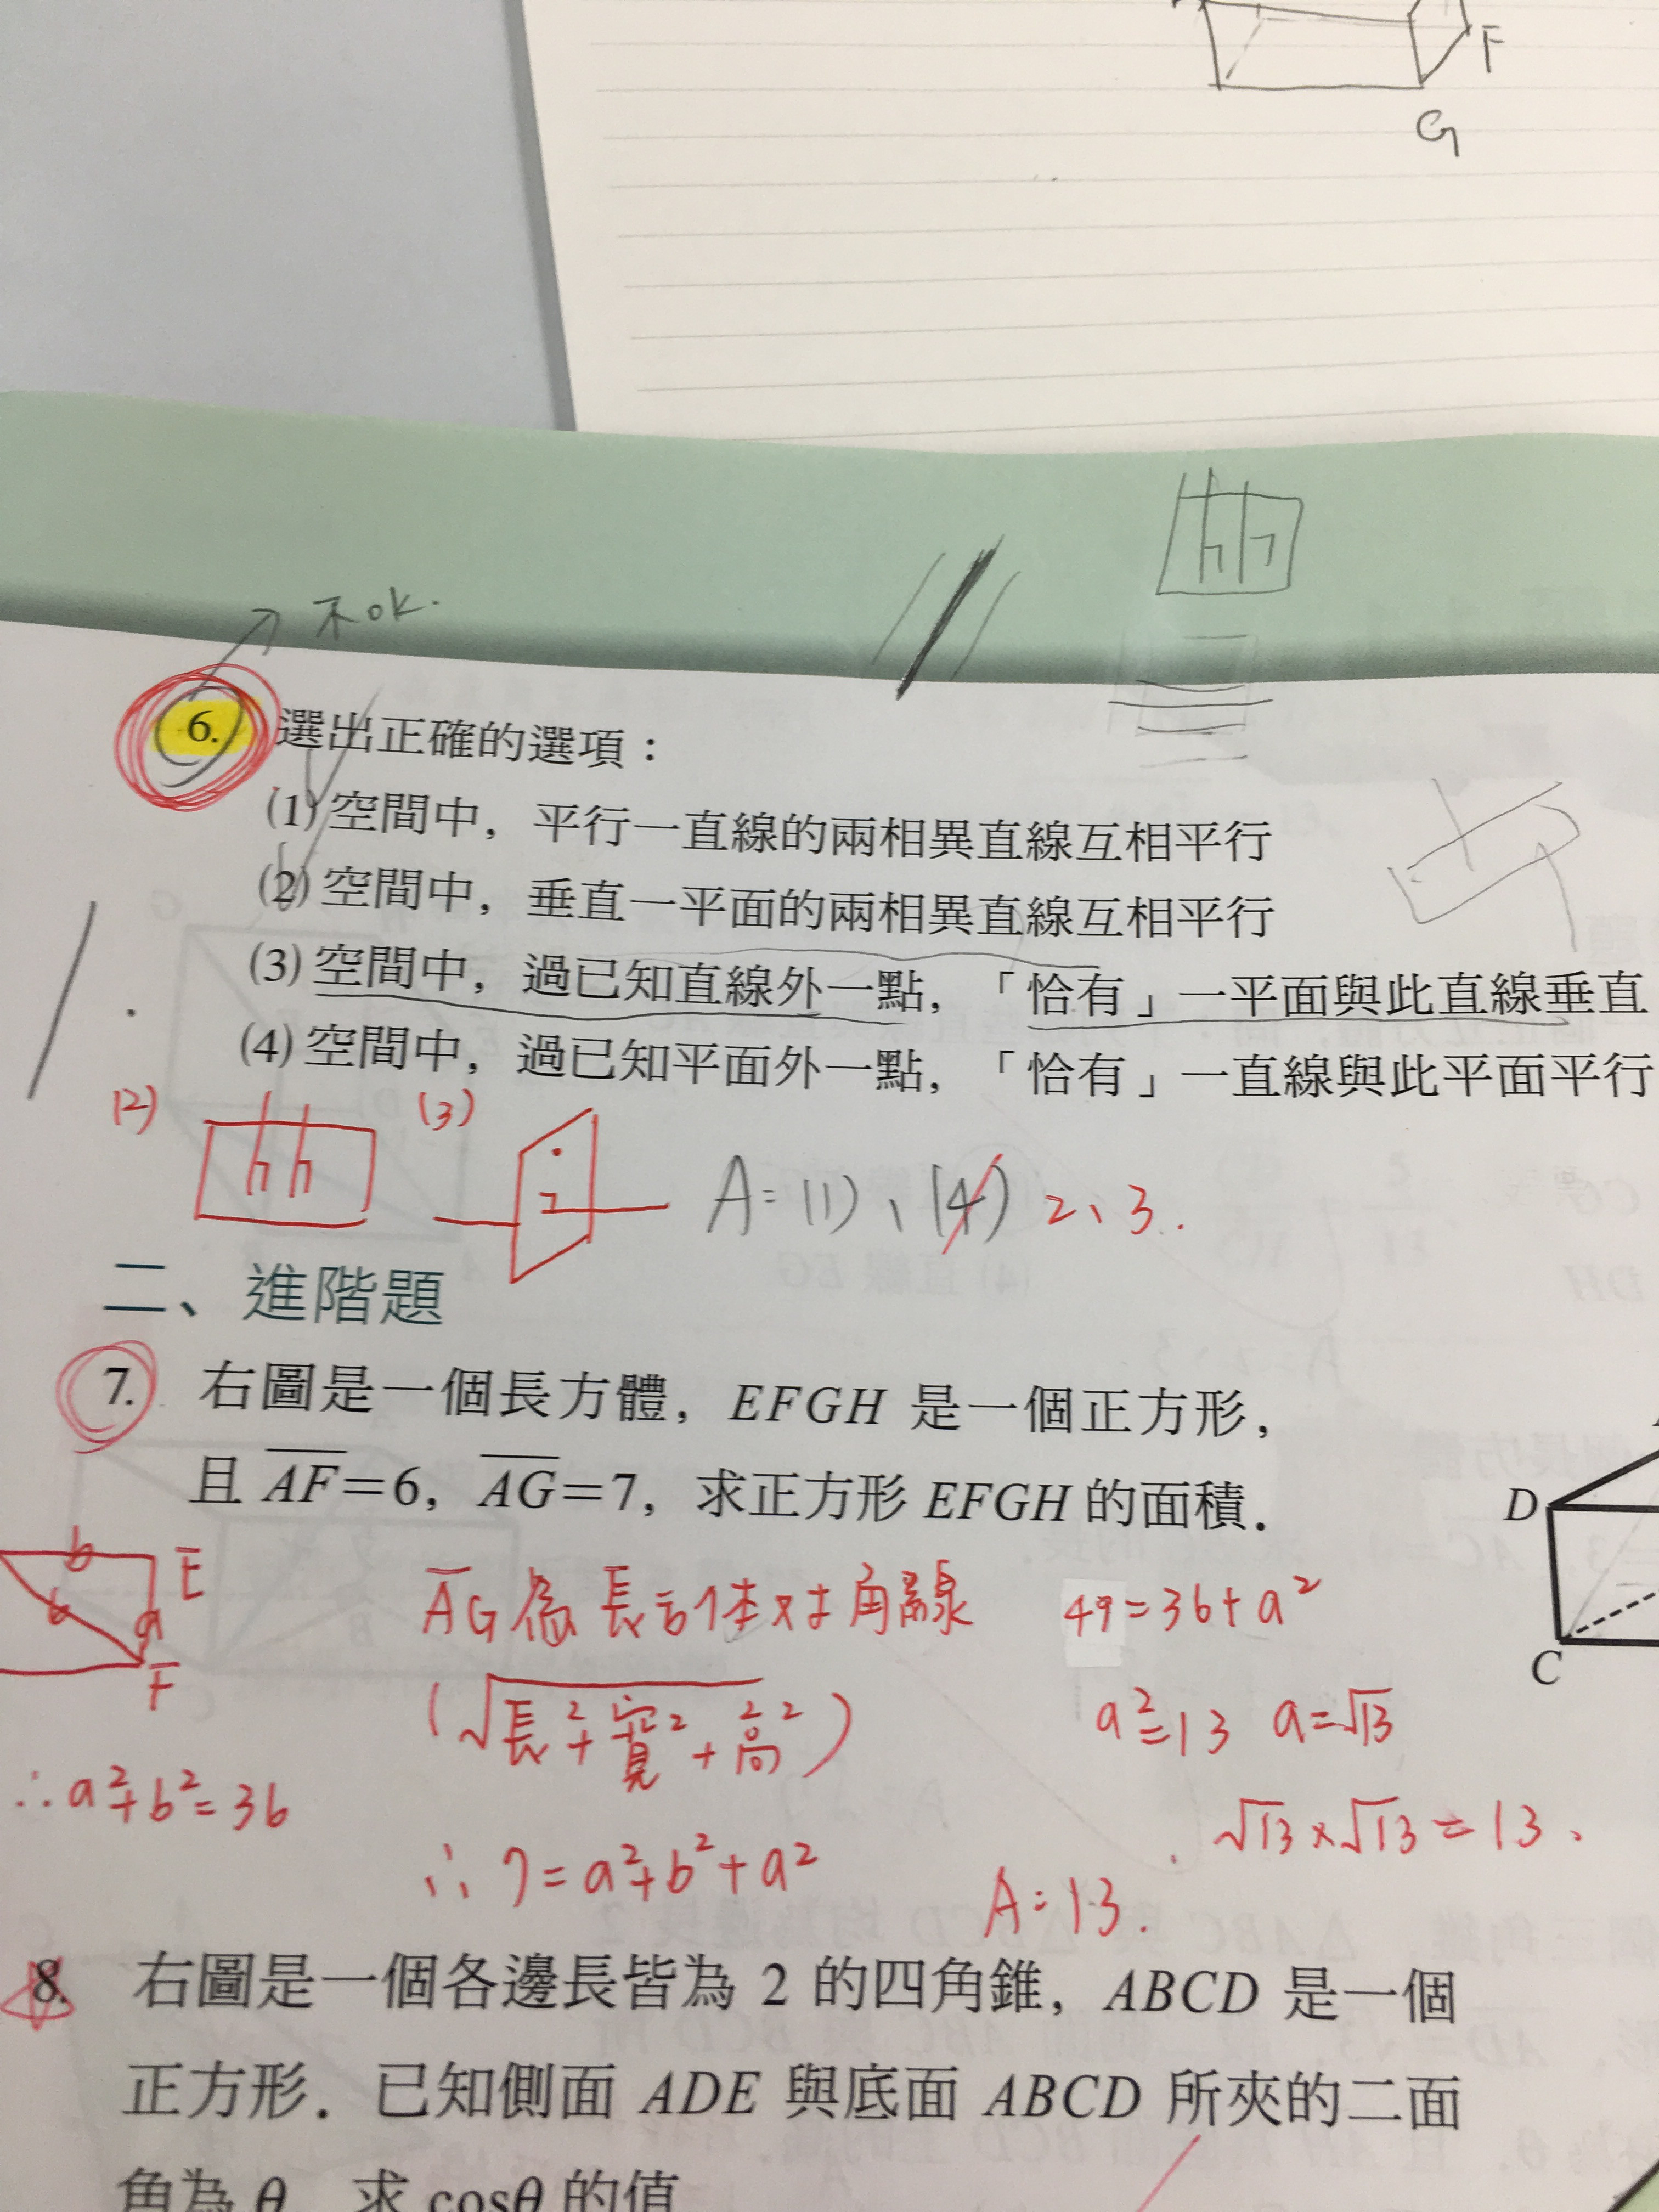 F
G
不ok.
6. 選出正確的選項：
(1) 空間中，平行一直線的兩相異直線互相平行
(2) 空間中，垂直一平面的兩相異直線互相平行
(3) 空間中，過已知直線外一點，「恰有」一平面與此直線垂直
(4) 空間中，過已知平面外一點，「恰有」一直線與此平面平行
(2)
(3)
A=(1)、(4) 2、3.
二、進階題
7. 右圖是一個長方體，EFGH 是一個正方形，
且 AF=6，AG=7，求正方形 EFGH 的面積．
D
C
b
E
6
a
F
AG為長方体对角線
(√長²+寬²+高²)
49=36+a²
a²=13 a=√13
∴a²+b²=36
√13×√13=13、
∴7=a²+b²+a²
A=13.
8. 右圖是一個各邊長皆為 2 的四角錐，ABCD 是一個
正方形．已知側面 ADE 與底面 ABCD 所夾的二面
角為 θ，求 cosθ 的值